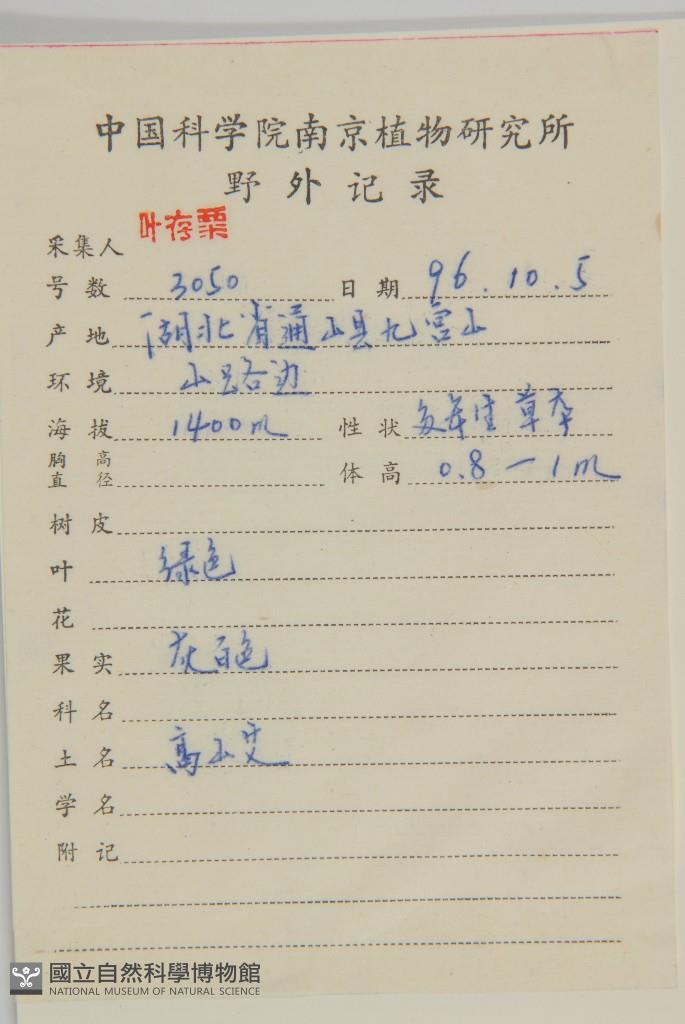 中国科学院南京植物研究所
野外记录
采集人 叶存粟
号数 3050 日期 96.10.5
产地 湖北省通山县九宫山
环境 山路边
海拔 1400m 性状 多年生草本
胸高直径 体高 0.8-1m
树皮
叶 绿色
花
果实 灰白色
科名
土名 高山艾
学名
附记
國立自然科學博物館
NATIONAL MUSEUM OF NATURAL SCIENCE